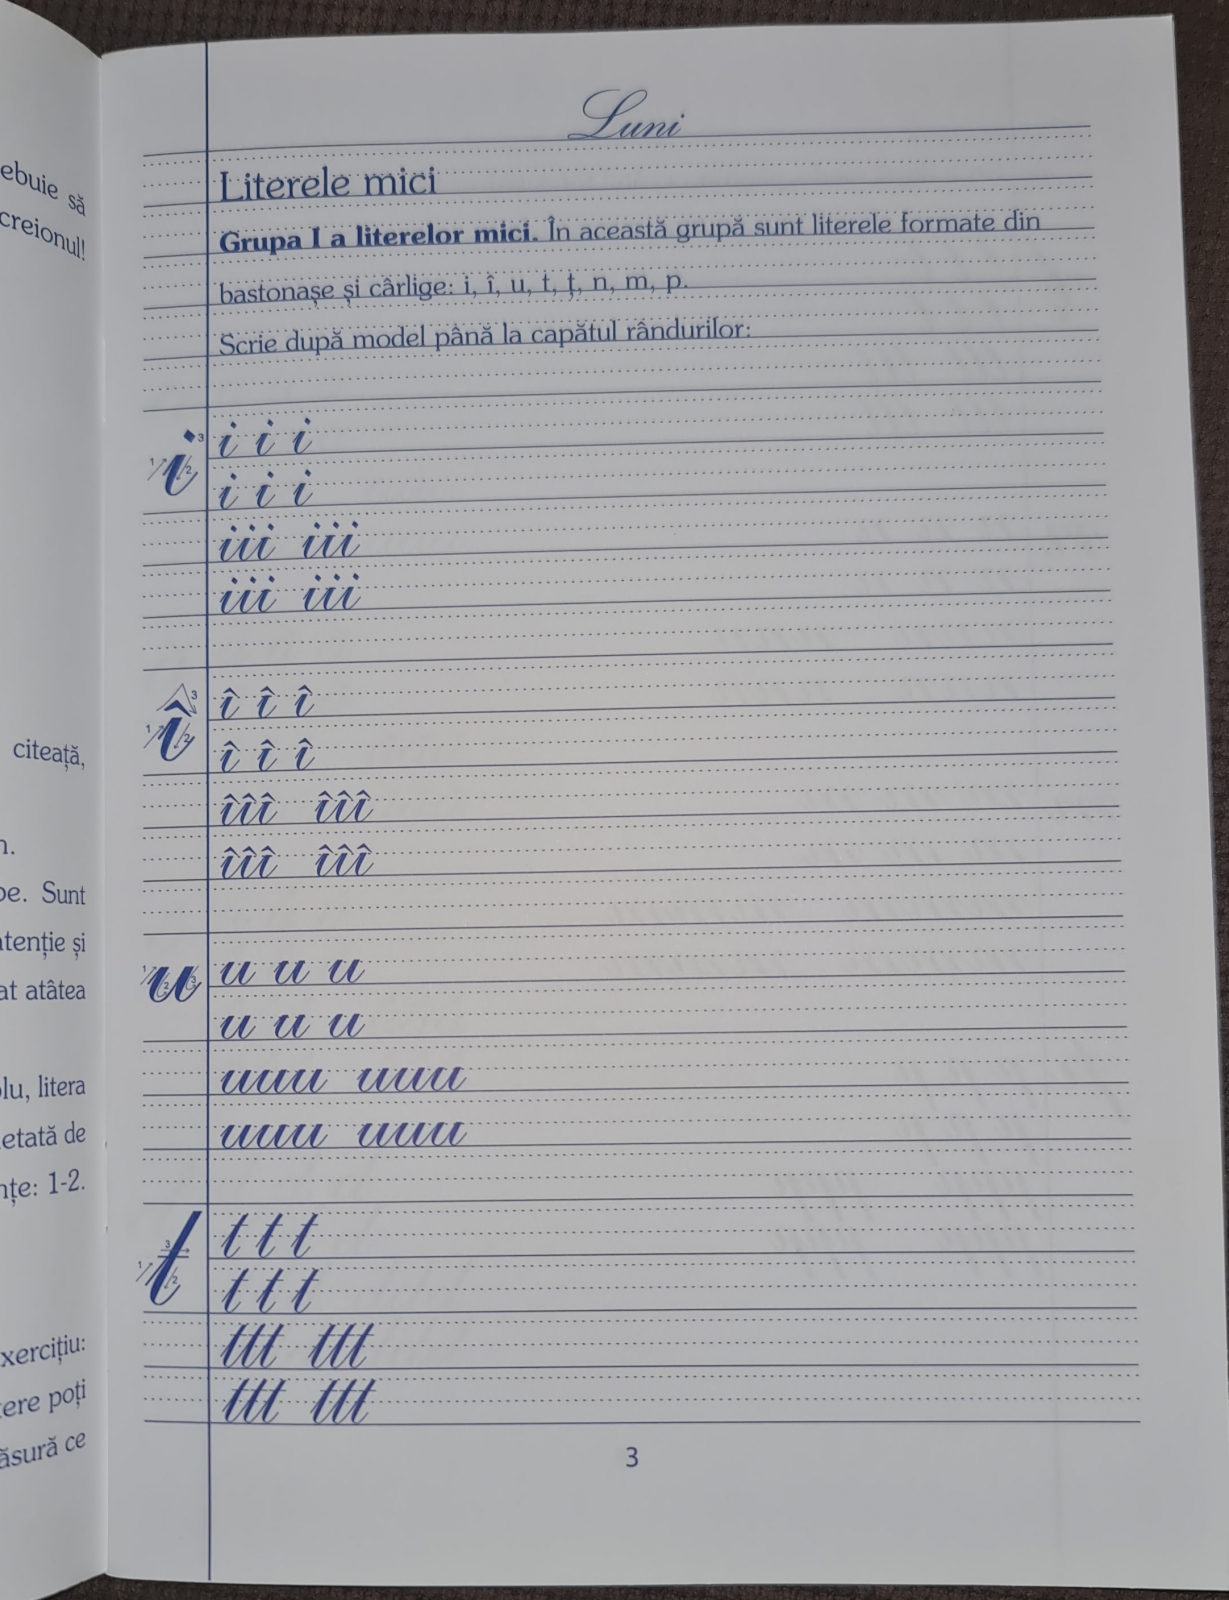 ebuie să
creionul!
citeață,
n.
pe. Sunt
atenție și
at atâtea
olu, litera
etată de
nțe: 1-2.
xercițiu:
ere poți
ăsură ce
Luni
Literele mici
Grupa I a literelor mici. În această grupă sunt literele formate din
bastonașe și cârlige: i, î, u, t, ț, n, m, p.
Scrie după model până la capătul rândurilor:
1 2 3 i i i i
i i i
iii iii
iii iii
1 2 3 î î î î
î î î
îîî îîî
îîî îîî
1 2 3 u u u u
u u u
uuu uuu
uuu uuu
1 2 3 t t t t
t t t
ttt ttt
ttt ttt
3